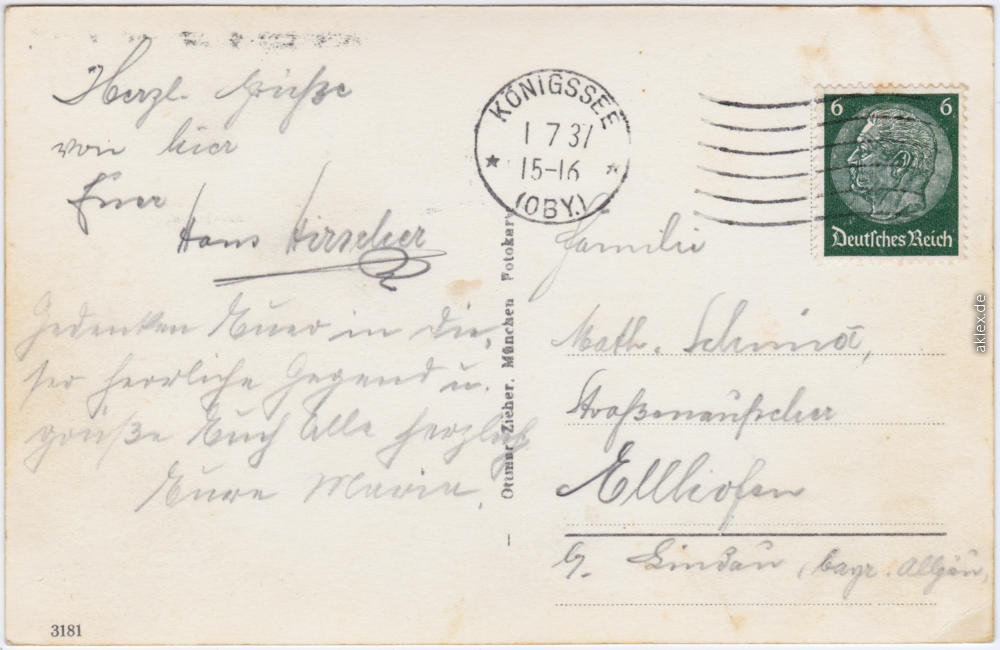 Herzl. Grüße
von hier
Euer
Hans Hirscher
Gedenken Euer in die,
ser herrliche Gegend u.
grüße Euch Alle herzlich
Eure Maria.
3181
Ottmar Zieher, München Fotokarte
KÖNIGSSEE
1 7 37
15-16
(OBY.)
6 6
Deutsches Reich
Familie
Math. Schmid,
Straßenaufseher
Ellhofen
b/. Lindau, bayr. Allgäu,
aklex.de